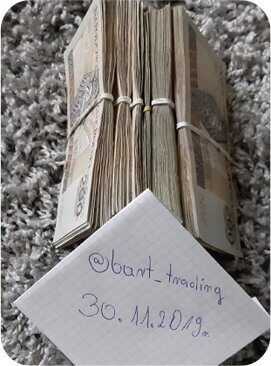 @bart_trading
30.11.2019r.